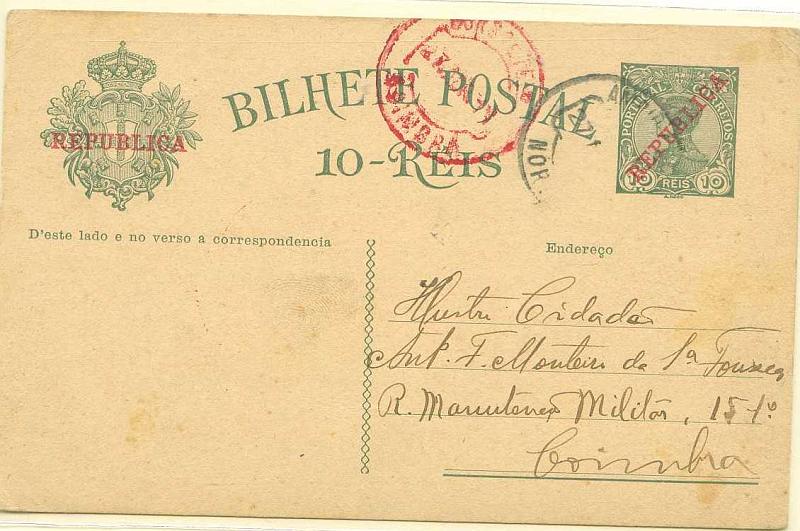 BILHETE POSTAL
10-REIS
REPUBLICA
PORTUGAL CORREIOS
REPUBLICA
10 REIS 10
COIMBRA
NOR
D'este lado e no verso a correspondencia
Endereço
Illustre Cidadão
Ant. F. Monteiro da Fonseca
R. Manutenção Militar, 15-1º
Coimbra